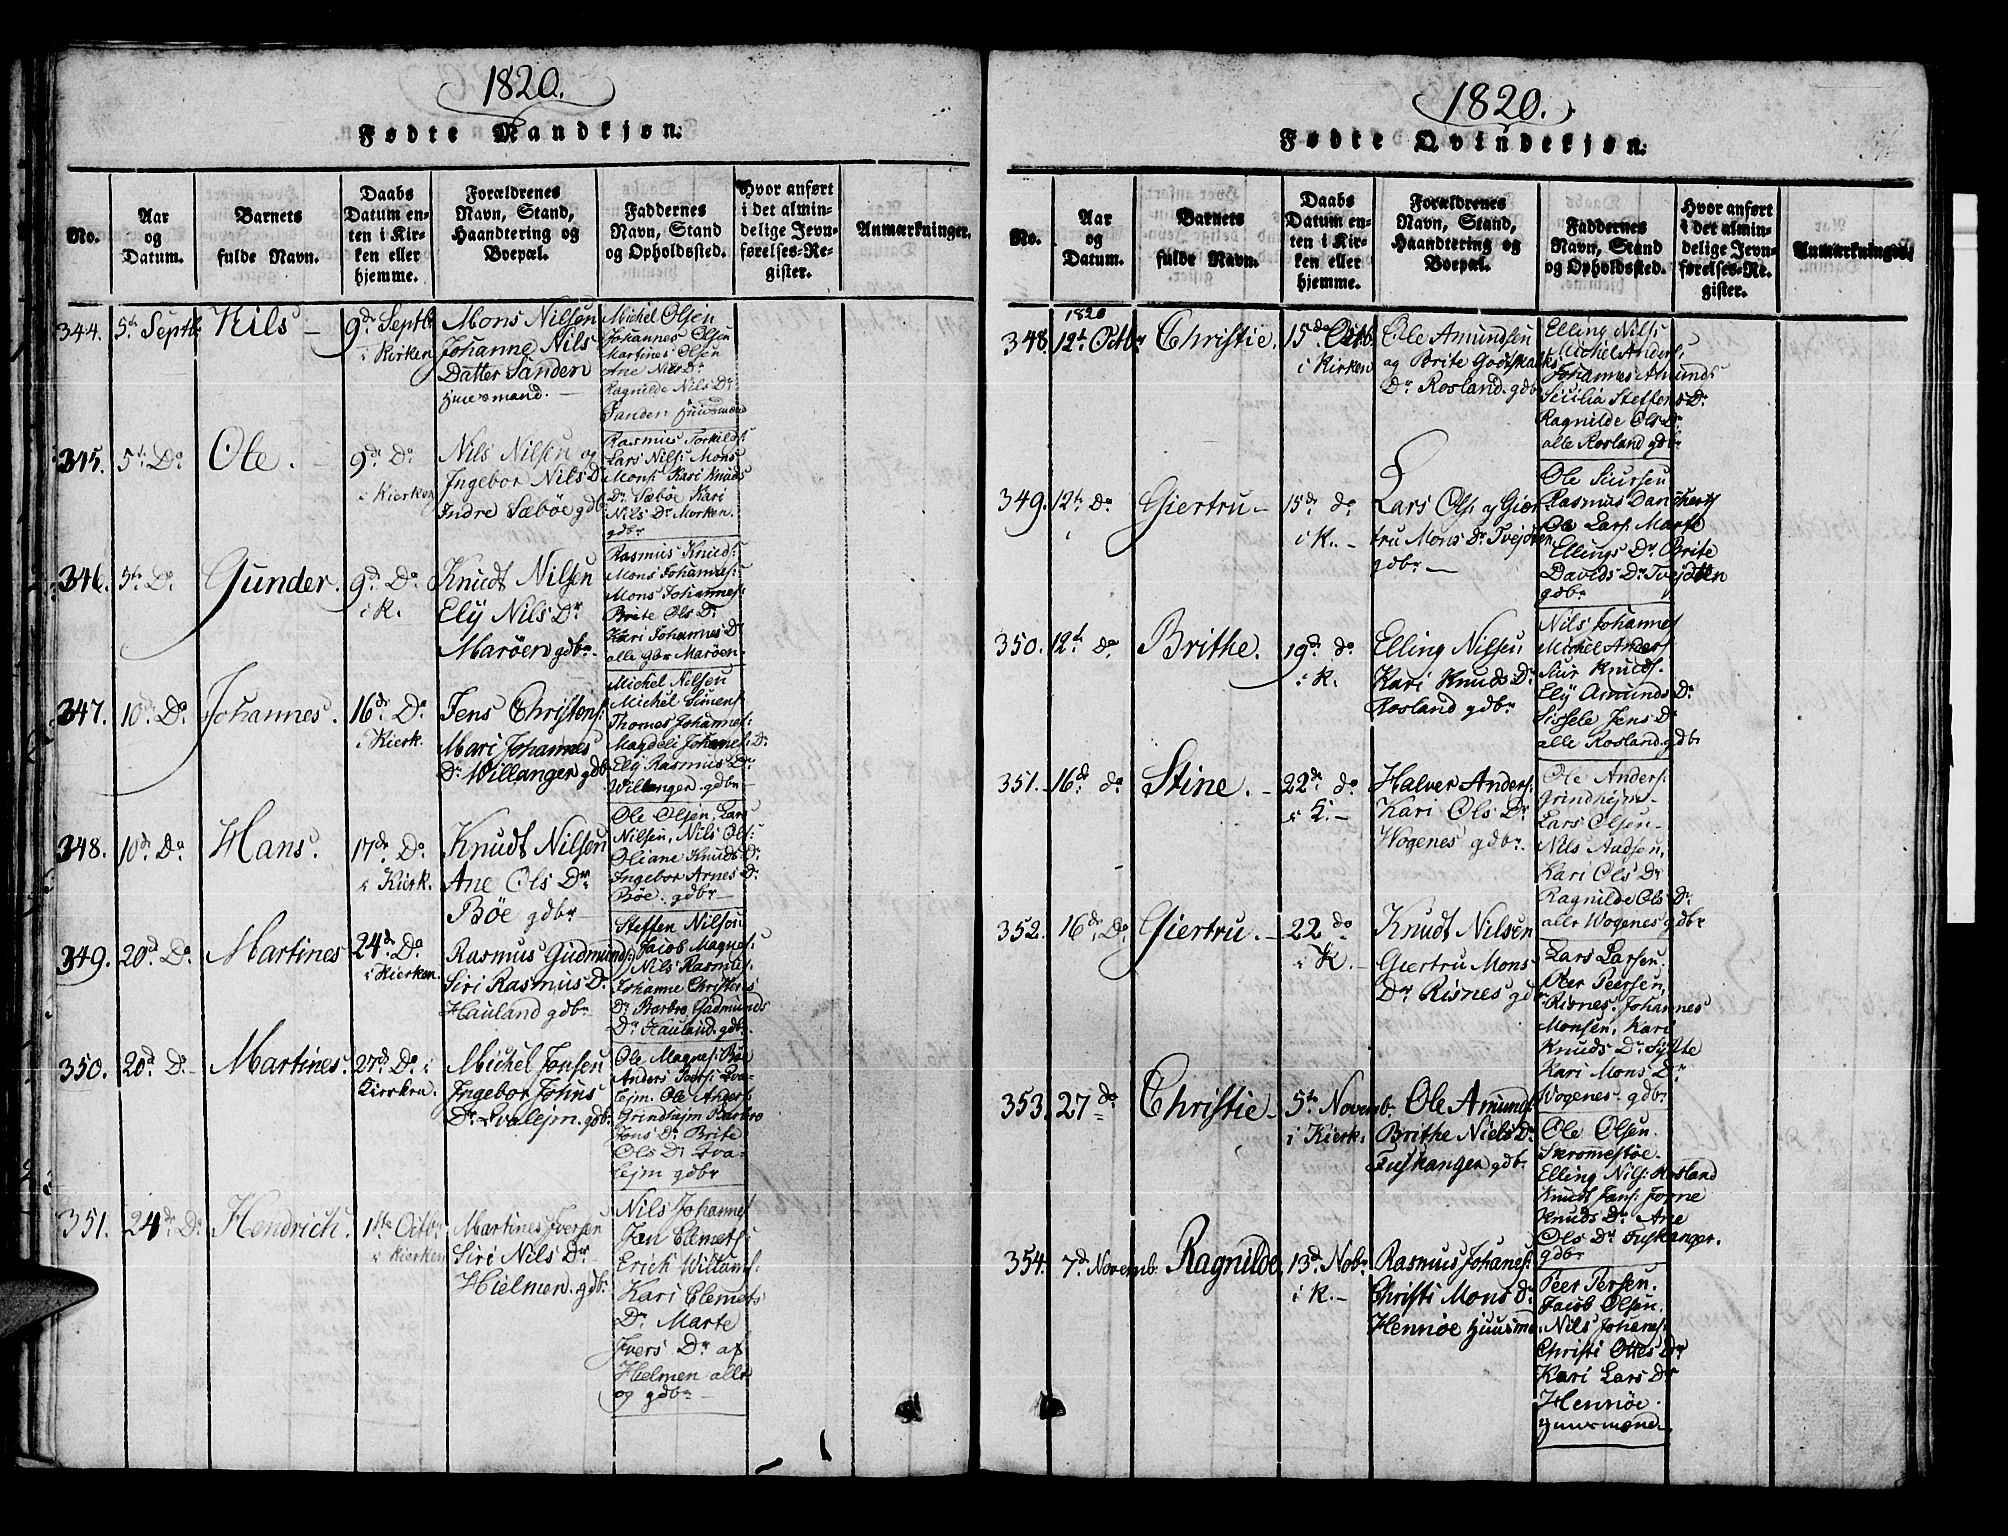 1820.
Fødte Mandkjøn.
No.
Aar
og
Datum.
Barnets
fulde Navn.
Daabs
Datum en-
ten i Kir-
ken eller
hjemme.
Forældrenes
Navn, Stand,
Haandtering og
Boepæl.
Faddernes
Navn, Stand
og Opholdssted.
Hvor anført
i det almin-
delige Jevn-
førelses-Re-
gister.
Anmærkninger.
344.
5th Septb.
Nils
9d Septb.
i Kirken
Mons Nilsen
Johanne Nils
Datter Sanden
Huusmand.
Michel Olsen
Johannes Olsen
Martines Olsen
Ane Nils Dr
Ragnilde Nils Dr
Sanden Huusmænd
345.
5th Do
Ole.
9d Do
i Kierken
Nils Nilsen og
Ingebor Nils D
Indre Sæbøe gdb
Rasmus Torkilds:
Lars Nils: Mons
Mons: Kari Knuds
Dr Sæbøe Kari
Nils Dr Morken.
gdbr
346.
5th Do
Gunder.
9d Do
i K.
Knudt Nilsen
Ely Nils Dr
Marøen gdbr
Rasmus Knuds:
Mons Johannes:
Mons Johannes:
Brite Ols Dr
Kari Johannes Dr
alle gbr Marøen.
347.
10d Do
Johannes.
16d Do
i Kierk.
Jens Christens:
Mari Johannes
Dr Willanger gdb
Michel Nilsen
Michel Simens:
Thomes Johannes:
Magdeli Johannes: Dr
Ely Rasmus Dr
Willanger. gdbr
348.
10d Do
Hans.
17d Do
i Kierk.
Knudt Nilsen
Ane Ols Dr
Bøe gdbr
Ole Olsen, Lars
Nilsen, Nils Ols:
Oliane Knuds Dr
Ingebor Arnes Dr
Bøe. gdbr
349.
20d Do
Martines
24d Do
i Kierken.
Rasmus Gudmund:
Siri Rasmus Dr
Hauland gdbr
Steffen Nilsen
Jacob Magnes:
Nils Rasmus:
Johanne Christens
Dr Barbro Gudmunds
Dr Hauland. gdbr
350.
20d Do
Martines.
27d Do i
Kirken.
Michel Jonsen
Ingebor Johns
Dr Qvalejm. gdbr
Ole Magnes: Bøe
Anders Peers: Qva-
lejm. Ole Anders
Grindhejm Barbro
Jons Dr Brite
Ols Dr Qva-
lejm gdbr
351.
24d Do
Hendrich.
1ste Octbr
i Kierken
Martines Iversen
Siri Nils Dr
Hielmen. gdb.
Nils Johannes
Jan Clemets:
Erich Willams:
Kari Clemets
Dr Marte
Ivers Dr af
Hielmen alle
og gdbr
1820.
Fødte Qvindekjøn.
No.
Aar
og
Datum.
Barnets
fulde Navn.
Daabs
Datum en-
ten i Kir-
ken eller
hjemme.
Forældrenes
Navn, Stand,
Haandtering og
Boepæl.
Faddernes
Navn, Stand
og Opholdssted.
Hvor anført
i det almin-
delige Jevn-
førelses-Re-
gister.
Anmærkninger.
348.
1820
12th Octbr
Christie.
15de Octb.
i Kirken
Ole Amundsen
og Brite Godskalks
Dr Rosland. gdb
Elling Nils:
Michel Anders:
Johannes Amunds:
Sicilia Steffens Dr
Ragnilde Ols Dr
alle Rosland gdbr
349.
12th do
Giertru
15de do
i K.
Lars Ols: og Gier-
tru Mons Dr Tvejten
gdbr
Ole Siursen
Rasmus Danchert
Ole Lars: Marte
Ellings Dr Brite
Davids Dr Tvejten
gdbr
350.
12th do
Brithe.
19d do
i K.
Elling Nilsen
Kari Knuds Dr
Rosland gdbr
Nils Johannes
Michel Anders
Siur Knuds.
Ely Amunds Dr
Sissele Jens Dr
alle Rosland gdbr
351.
16d do
Stine.
22d do
i K.
Halver Anders:
Kari Ols Dr
Wogenes gdbr
Ole Anders:
Grindhejm
Lars Olsen
Nils Aadsen,
Kari Ols Dr
Ragnilde Ols Dr
alle Wogenes gdbr
352.
16d Do
Giertru.
22 do
i K.
Knudt Nilsen
Giertru Mons
Dr Risnes gdb
Lars Larsen.
Peer Peersen,
Risnes. Johannes
Monsen, Kari
Knuds Dr Sylte
Kari Mons Dr
Wogenes. gdbr
353.
27 do
Christie
5th Novemb.
i Kierk.
Ole Amunds
Brithe Niels Dr
Fuskanger gdbr
Ole Olsen.
Skromestøe.
Elling Nils: Rosland
Knudt Jans: Jorne
Knuds Dr Ane
Ols Dr Fuskanger.
gdbr
354.
7d Novemb.
Ragnilde.
13d Nobr
i K.
Rasmus Johanes:
Christi Mons Dr
Hennøe Huusm.
Peer Persen.
Jacob Olsen.
Nils Johanes:
Christi Ottes Dr
Kari Lars Dr
Hennøe.
Huusmænd